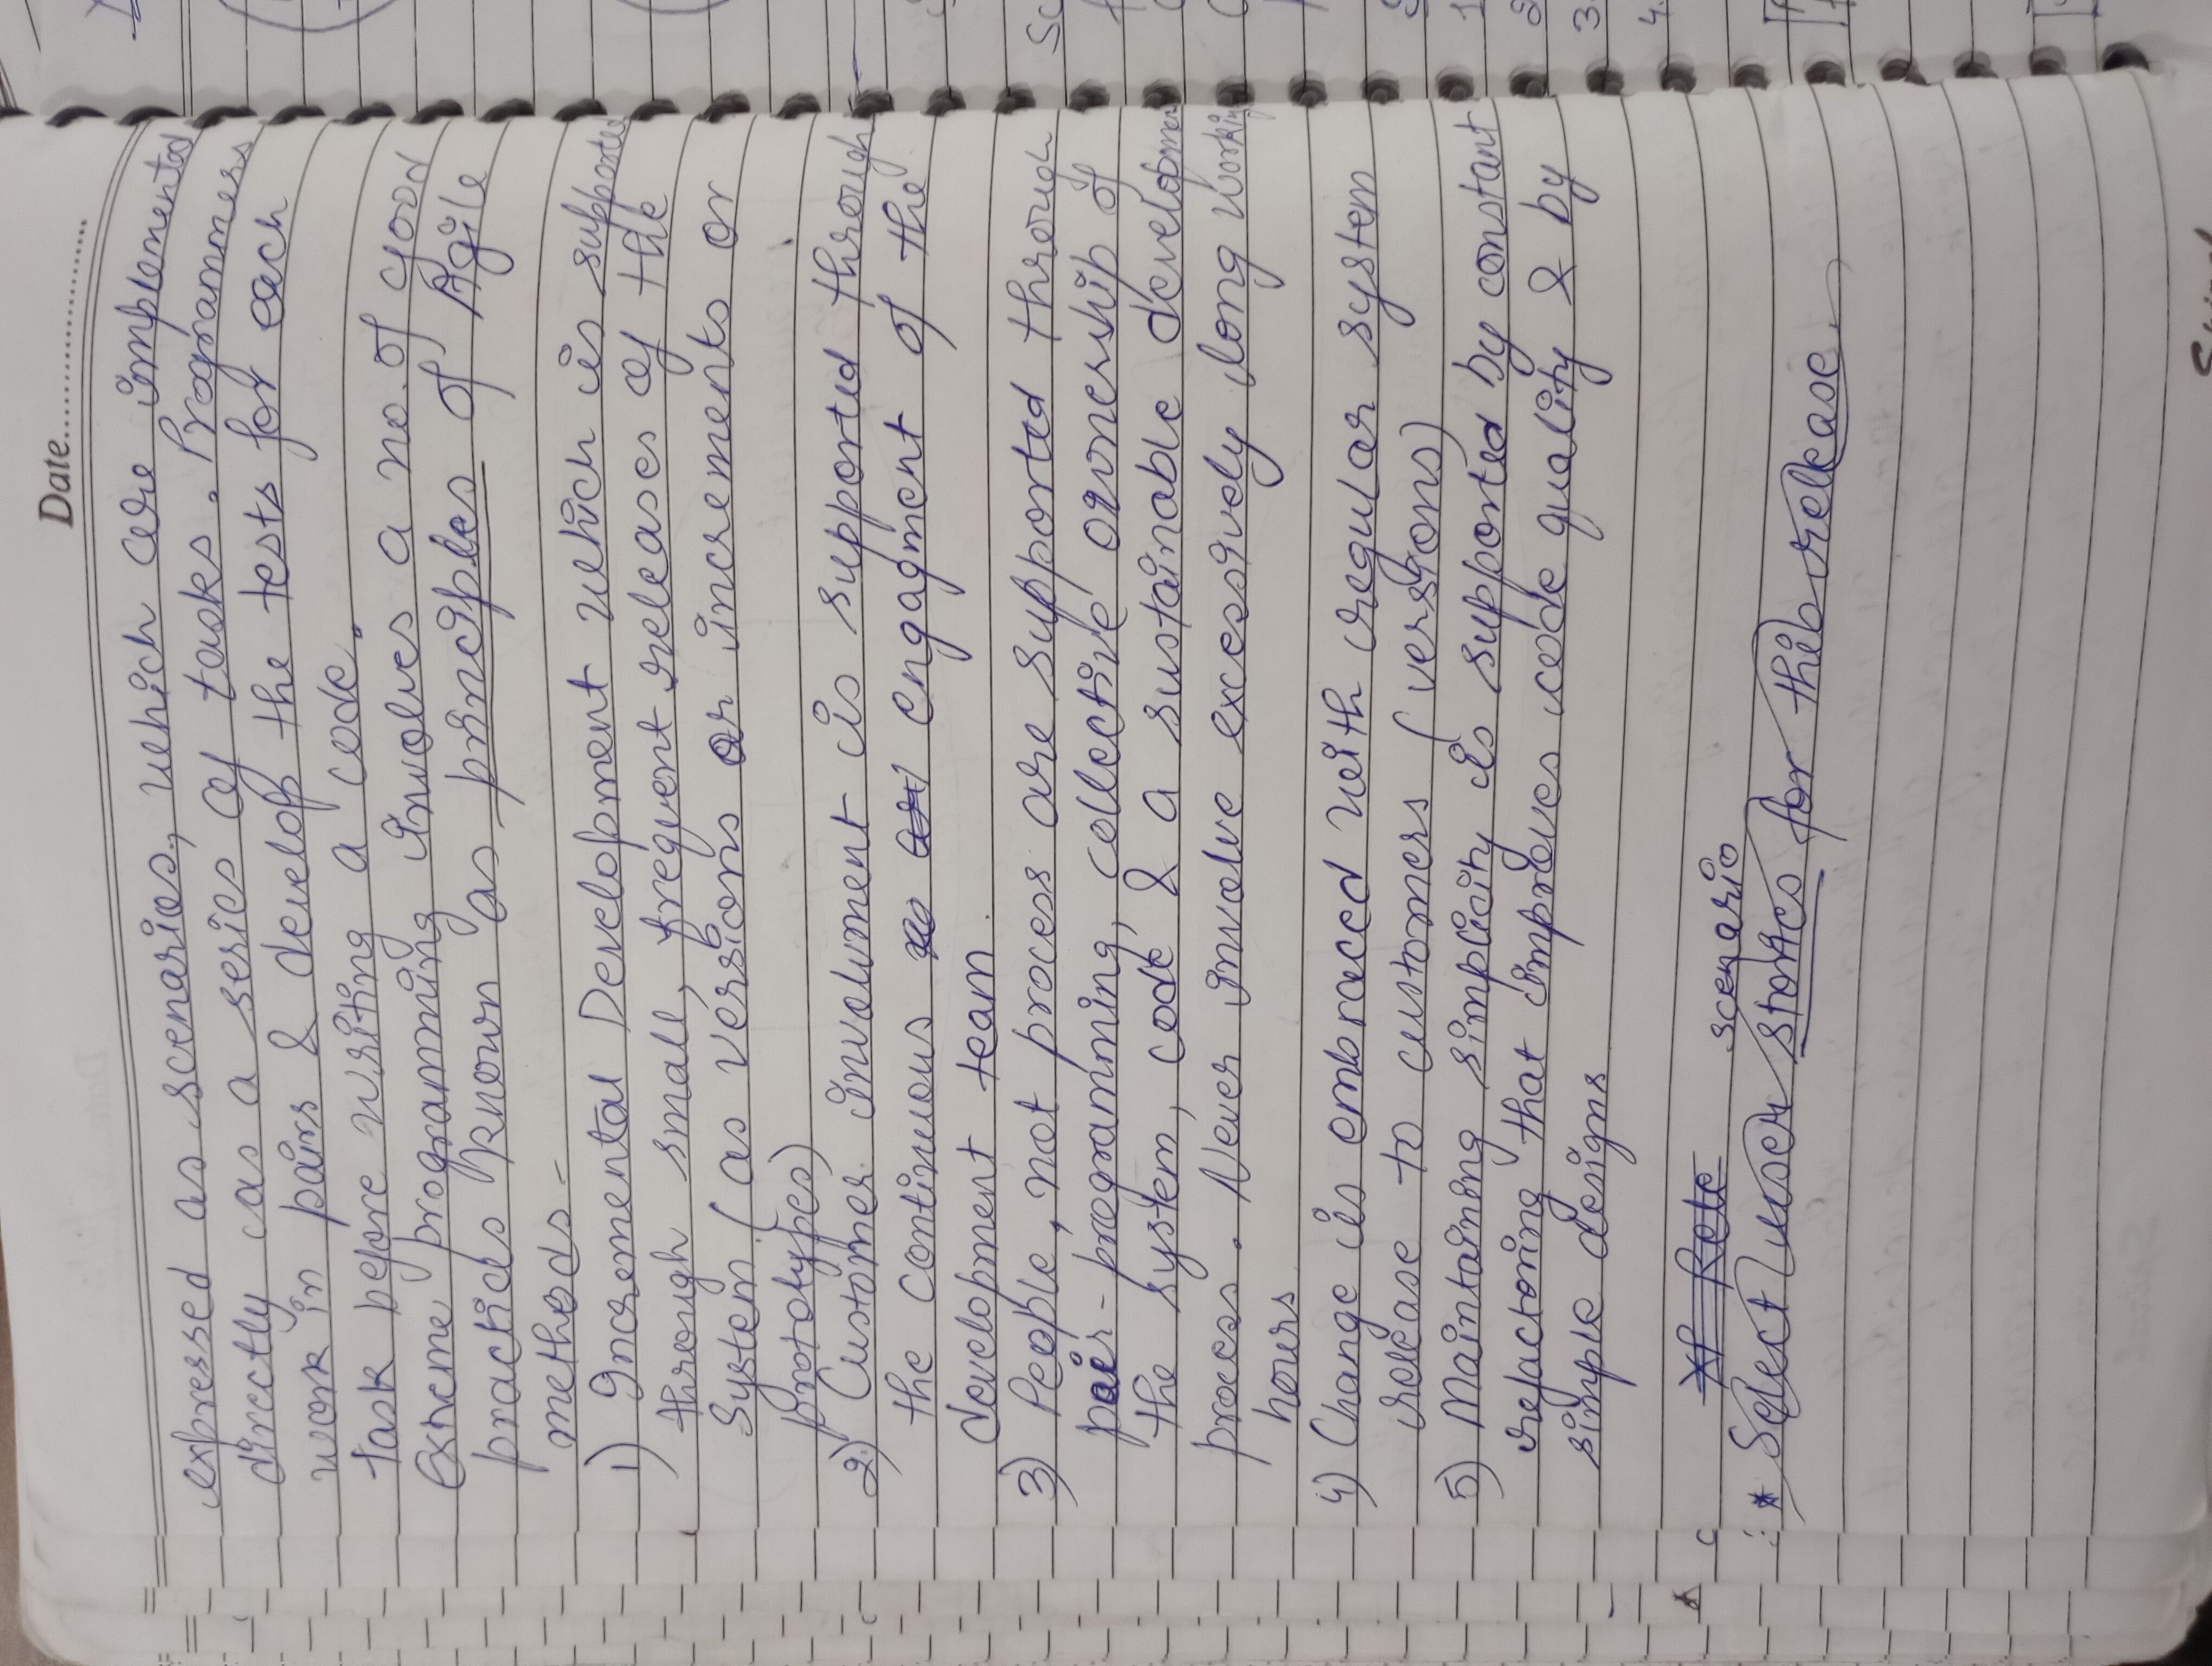 Date
expressed as scenarios, which are implemented
directly as a series of tasks. Programmers
work in pairs & develop the tests for each
task before writing a code.
Extreme programming involves a no. of good
practices known as principles of Agile
methods -
1) Incremental Development which is supported
through small, frequent releases of the
System (as versions or increments or
prototypes)
2) Customer involvment is supported through
the continuous engagment of the
development team.
3) People, not process are supported through
pair-programming, collective ownership of
the system, code & a sustainable development
process. Never involve excessively long working
hours
4) Change is embraced with regular system
release to customers (versions)
5) Maintaining simplicity is supported by constant
refactoring that improves code quality & by
simple designs
scenario
* Select user stories for this release.